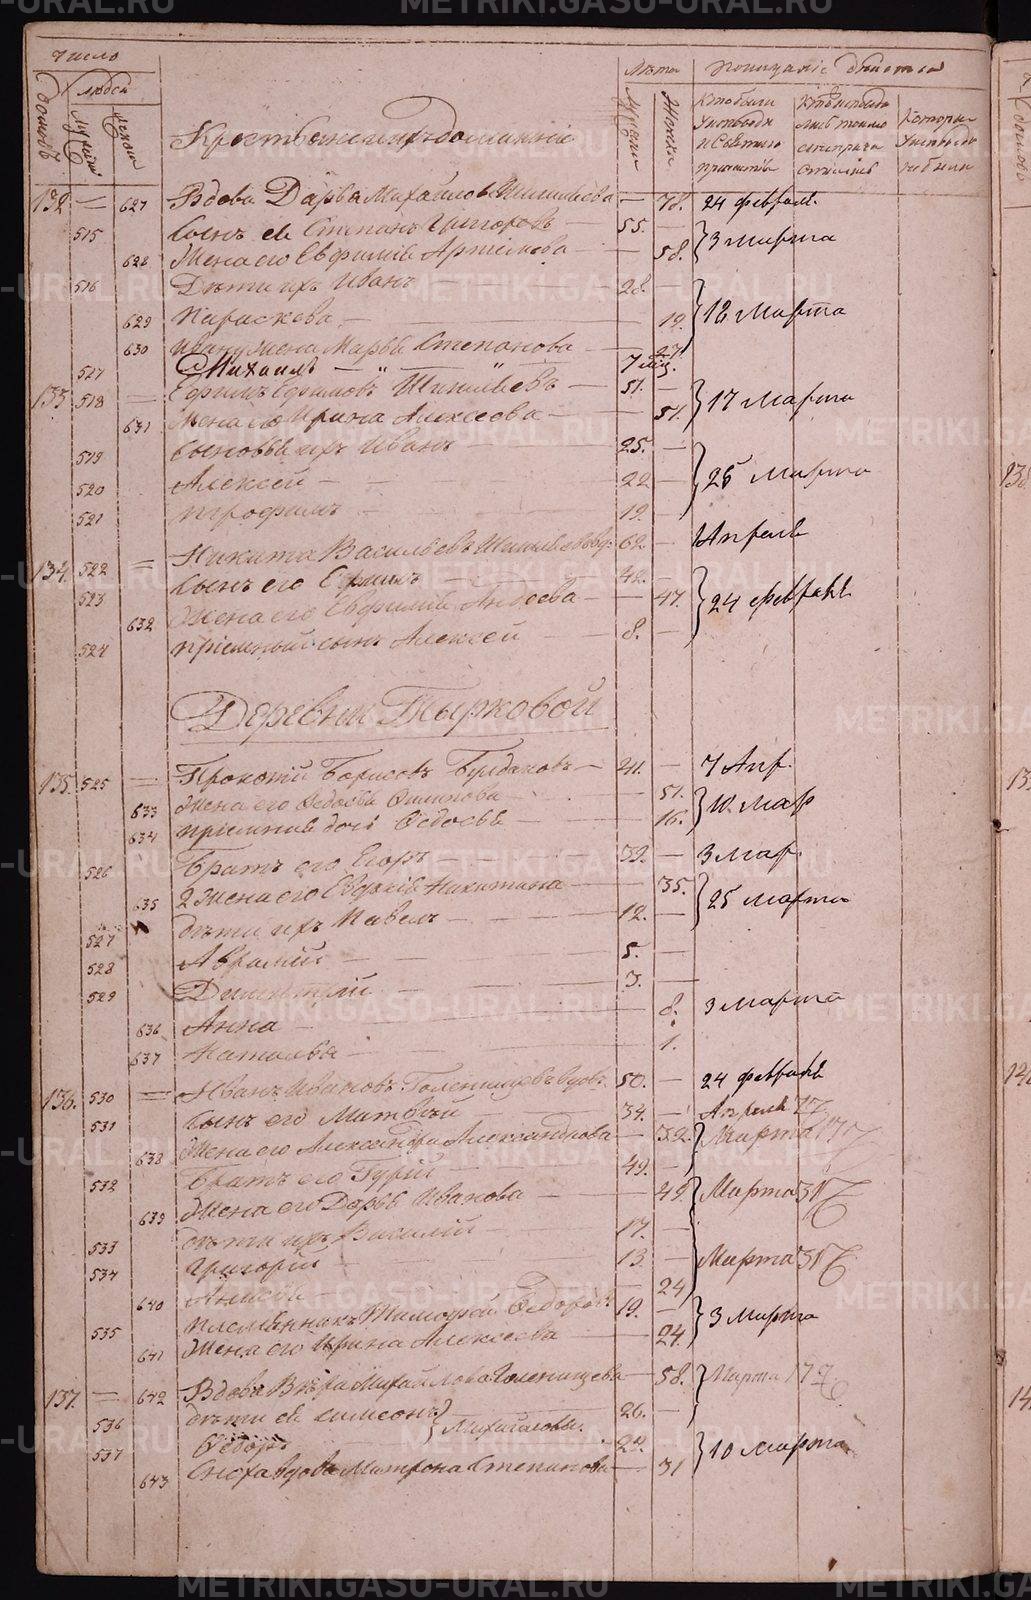 METRIKI.GASO-URAL.RU
Число
домовъ
людей
мужеска
женска
Крестьяне и ихъ домашніе
Лѣта
Мужеск
Женска
Показаніе бытія
Кто были у исповѣди и Святаго причастія
Которые у исповѣди не были
132 — 627 Вдова Дарья Михайлова Шишиева — 78. 24 февраля
515 Сынъ ея Степанъ Григоровъ — 55. —
628 Жена его Евфимія Артемова — 58. } 3 марта
516 Дѣти ихъ Иванъ — 28. —
629 Параскева — 19. } 12 Марта
630 Ивану жена Марья Степанова — 27.
527 Михаилъ — " — " — 7 мѣс.
133. 518 — Ефимъ Ефимовъ Шишиевъ — 51. —
631 Жена его Ирина Алексеева — 51. } 17 марта
519 Сыновья ихъ Иванъ — 25. —
520 Алексей — 22 — } 25 марта
521 Трофимъ — 19. —
134. 522 = Никита Васильевъ Шишиевъ вд. 62. — Апреля
523 Сынъ его Ефимъ — 42. —
632 Жена его Евфимія Авдеева — 47. } 24 февраля
524 пріемный сынъ Алексей — 8. —
Деревни Тырковой
135. 525 — Прокопій Борисовъ Бурдаковъ — 41. — 7 Апр.
633 Жена его Федосья Филипова — 51.
634 пріемная дочь Федосья — 16. } 10 Мар
526 Братъ его Егоръ — 39. — 3 мар.
635 2 Жена его Евдокія Никитина — 35. } 25 марта
527 дѣти ихъ Павелъ — 12. —
528 Аврамій — 5. —
529 Димитрій — 3. —
636 Анна — 8. 3 марта
637 Наталья — 1.
136. 530 = Иванъ Ивановъ Голенищевъ вдов. 50. — 24 февраля
531 Сынъ его Матвѣй — 34. — Апреля 17
638 Жена его Александра Александрова — 32. } Марта 17
532 Братъ его Гурій — 49. —
639 Жена его Дарья Иванова — 49. } Марта 31
533 дѣти ихъ Василій — 17. —
534 Григорій — 13. — Марта 31
640 Анисья — 24
535 племянникъ Тимофей Федоров. 19. —
641 Жена его Ирина Алексеева — 24. } 3 марта
137. — 642 Вдова Вѣра Михайлова Голенищева — 58. } Марта 17
536 дѣти ея Симеонъ } Михайловы. 26. —
537 Федоръ 24. —
643 Сноха вдова Матрона Степанова — 31 } 10 марта